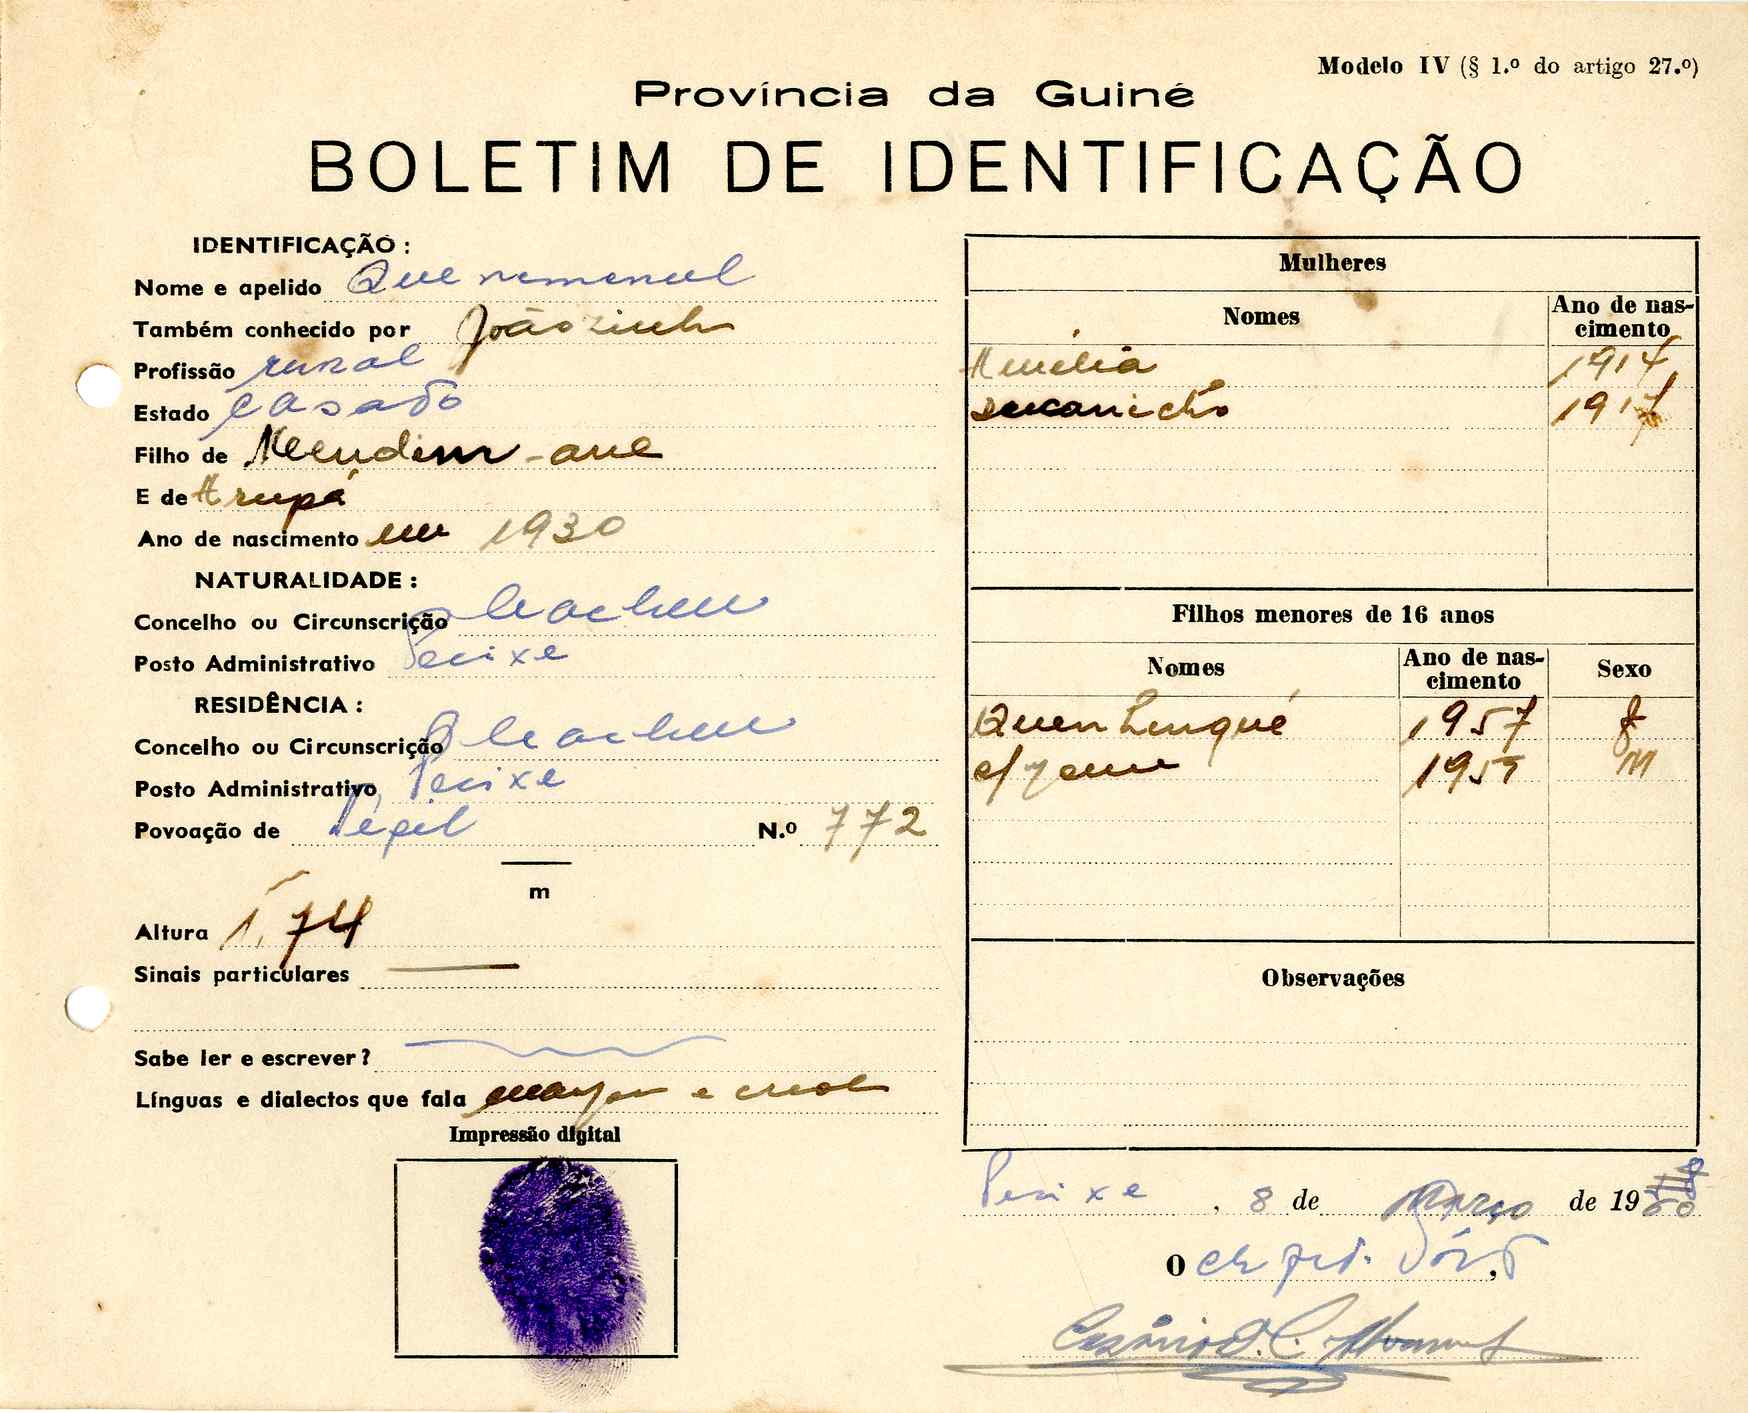 Modelo IV (§ 1.º do artigo 27.º)
Província da Guiné
BOLETIM DE IDENTIFICAÇÃO
IDENTIFICAÇÃO :
Nome e apelido Que
Também conhecido por Joãozinh
Profissão rural
Estado casado
Filho de
E de Arupá
Ano de nascimento em 1930
NATURALIDADE :
Concelho ou Circunscrição Cacheu
Posto Administrativo Pecixe
RESIDÊNCIA :
Concelho ou Circunscrição Cacheu
Posto Administrativo Pecixe
Povoação de N.º 772
m
Altura 1,74
Sinais particulares
Sabe ler e escrever ?
Línguas e dialectos que fala e
Impressão digital
Mulheres
Nomes Ano de nas-
cimento
Amélia 1914
191
Filhos menores de 16 anos
Nomes Ano de nas-
cimento Sexo
Quen 1957 f
1959 M
Observações
Pecixe , 8 de Março de 1960
O